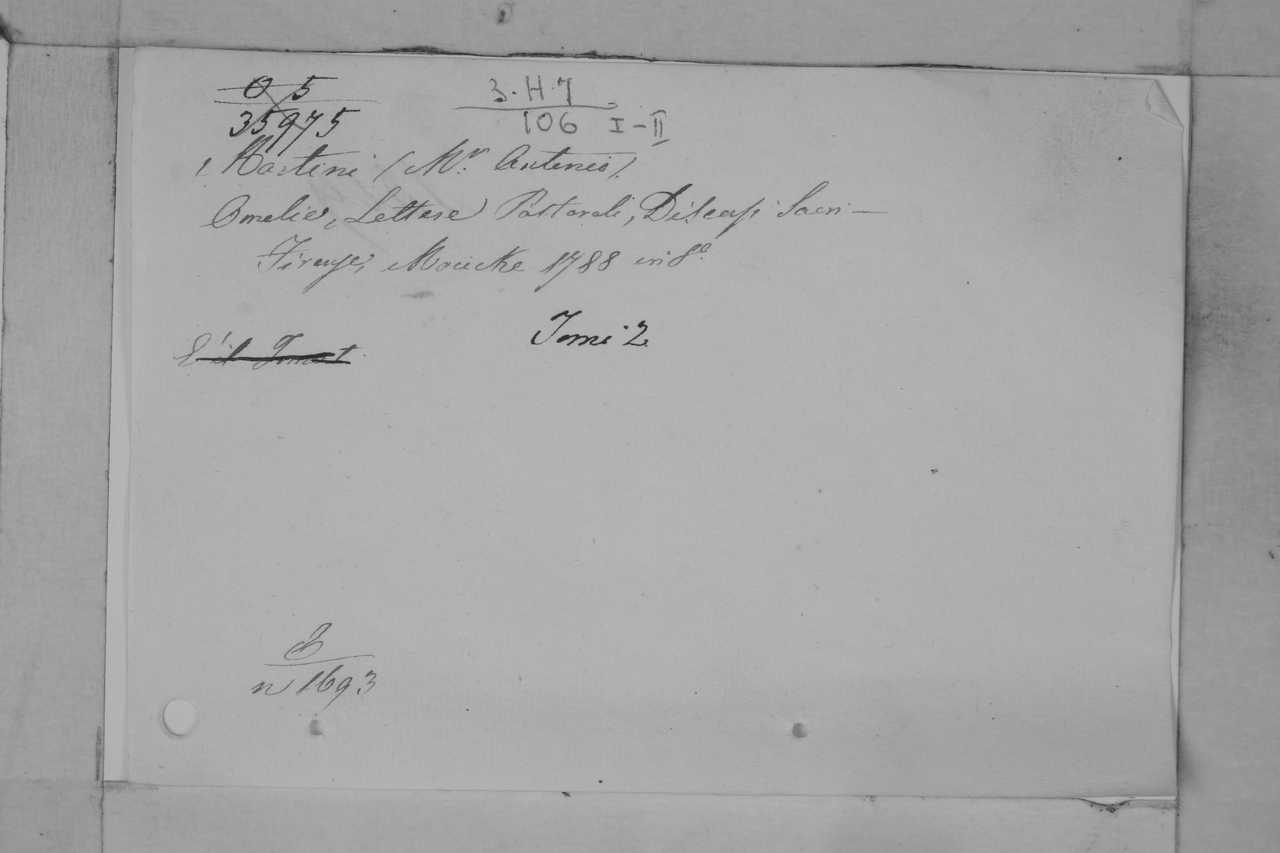 O 5
35975
3.H.7
106 I-II
Martini (Mr. Antonio).
Omelie, Lettere Pastorali, Discorsi Sacri —
Firenze, Moücke 1788 in 8º.
Tomi 2
E' il Tomo 1.
B
n 1693